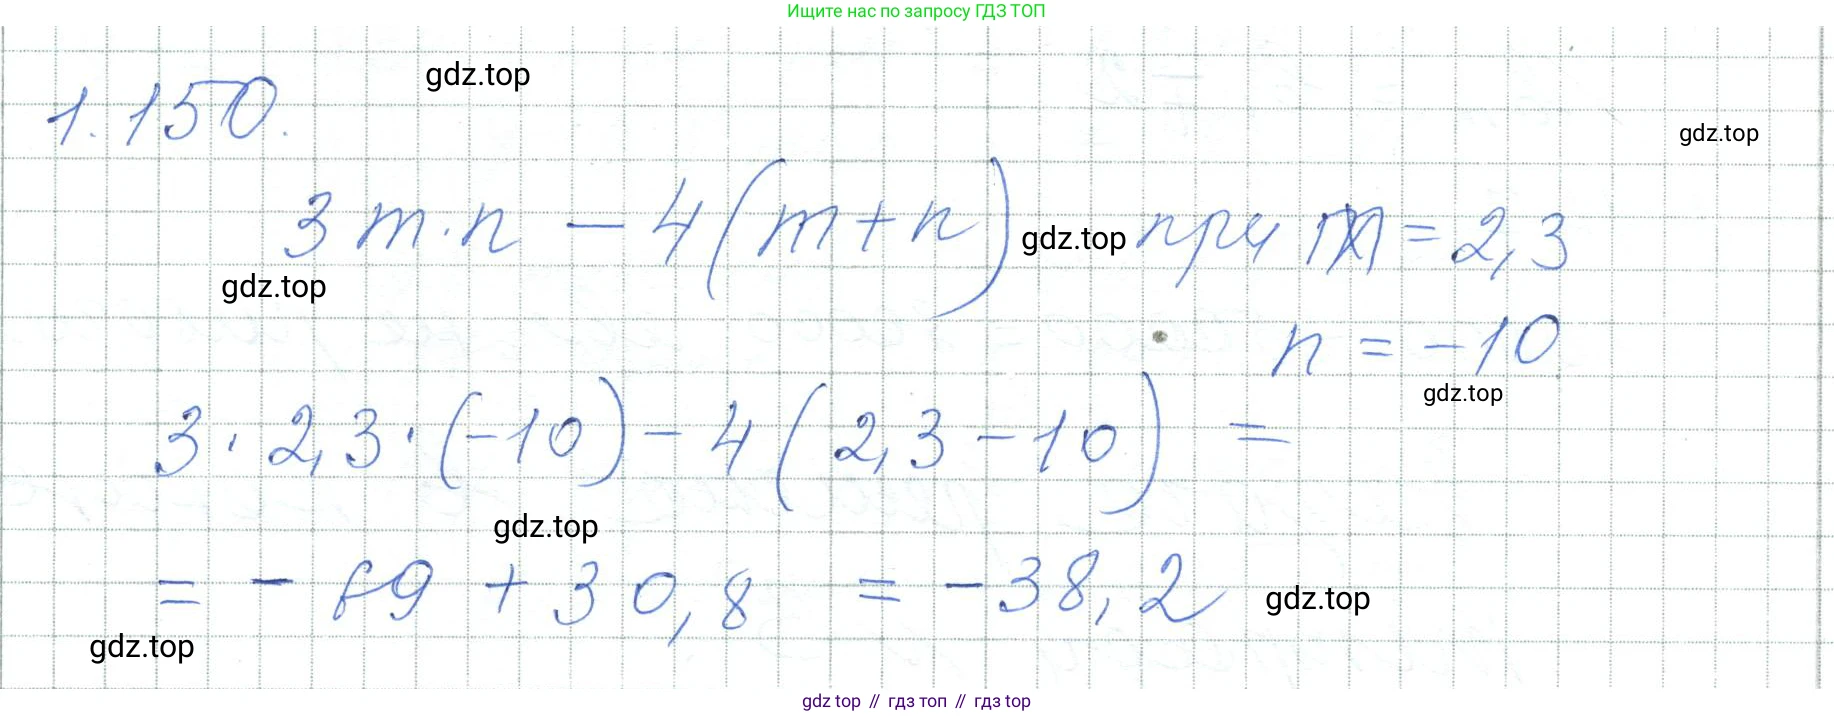 Ищите нас по запросу ГДЗ ТОП
gdz.top
1.150.
gdz.top
3m·n - 4(m+n) gdz.top при m = 2,3
gdz.top
n = -10
gdz.top
3 · 2,3 · (-10) - 4(2,3 - 10) =
gdz.top
= - 69 + 30,8 = -38,2 gdz.top
gdz.top
gdz top // гдз топ // гдз top